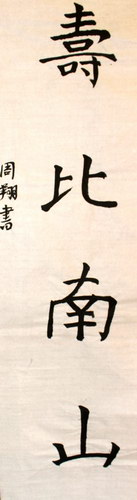 壽比南山
周翔書